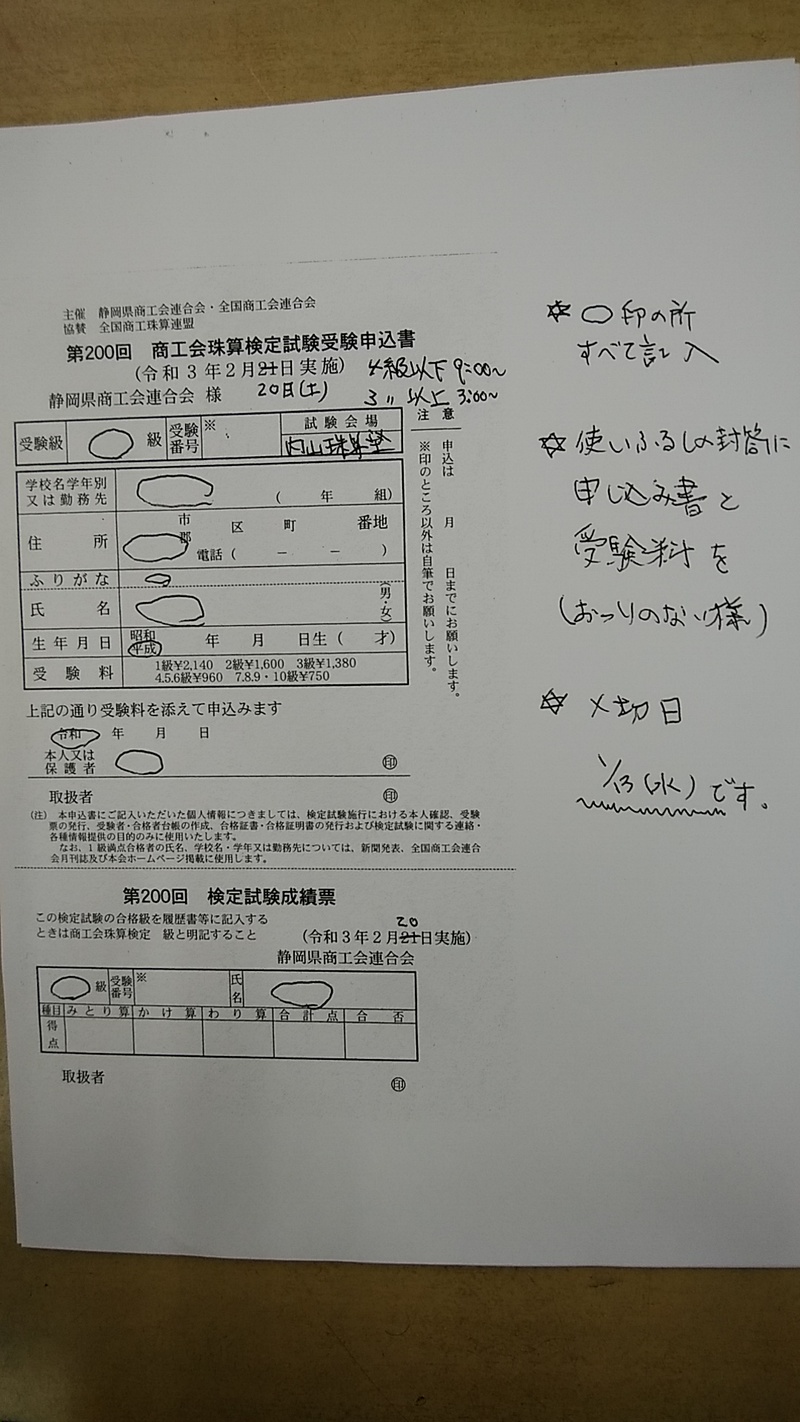 主催 静岡県商工会連合会・全国商工会連合会
協賛 全国商工珠算連盟
第200回 商工会珠算検定試験受験申込書
(令和3年2月21日実施) 4級以下 9:00〜
静岡県商工会連合会 様 20日(土) 3〃以上 3:00〜
受験級 級 受験番号 ※ 試験会場
内山珠算塾
学校名学年別
又は勤務先 ( 年 組)
住所 市 郡 区 町 番地
電話( − − )
ふりがな
氏名 (男・女)
生年月日 昭和 平成 年 月 日生( 才)
受験料 1級¥2,140 2級¥1,600 3級¥1,380
4.5.6級¥960 7.8.9・10級¥750
注意
申込は 月 日までにお願いします。
※印のところ以外は自筆でお願いします。
上記の通り受験料を添えて申込みます
令和 年 月 日
本人又は
保護者 印
取扱者 印
(注) 本申込書にご記入いただいた個人情報につきましては、検定試験施行における本人確認、受験
票の発行、受験者・合格者台帳の作成、合格証書・合格証明書の発行および検定試験に関する連絡・
各種情報提供の目的のみに使用いたします。
なお、1級満点合格者の氏名、学校名・学年又は勤務先については、新聞発表、全国商工会連合
会月刊誌及び本会ホームページ掲載に使用します。
第200回 検定試験成績票
この検定試験の合格級を履歴書等に記入する
ときは商工会珠算検定 級と明記すること
20
(令和3年2月21日実施)
静岡県商工会連合会
級 受験番号 ※ 氏名
種目 みとり算 かけ算 わり算 合計点 合否
得点
取扱者 印
☆ ○印の所
すべて記入
☆ 使いふるしの封筒に
申し込み書と
受験料を
(おつりのない様)
☆ 〆切日
1/13(水)です。